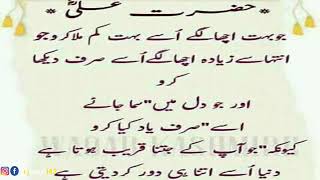 حضرت علیؓ
جو بہت اچھا لگے اُسے بہت کم ملا کرو جو
انتہا سے زیادہ اچھا لگے اُسے صرف دیکھا
کرو
اور جو دل میں "سما جائے
اسے "صرف یاد کیا کرو
کیونکہ "جو آپ کے جتنا قریب ہوتا ہے
دنیا اُسے اتنا ہی دور کر دیتی ہے